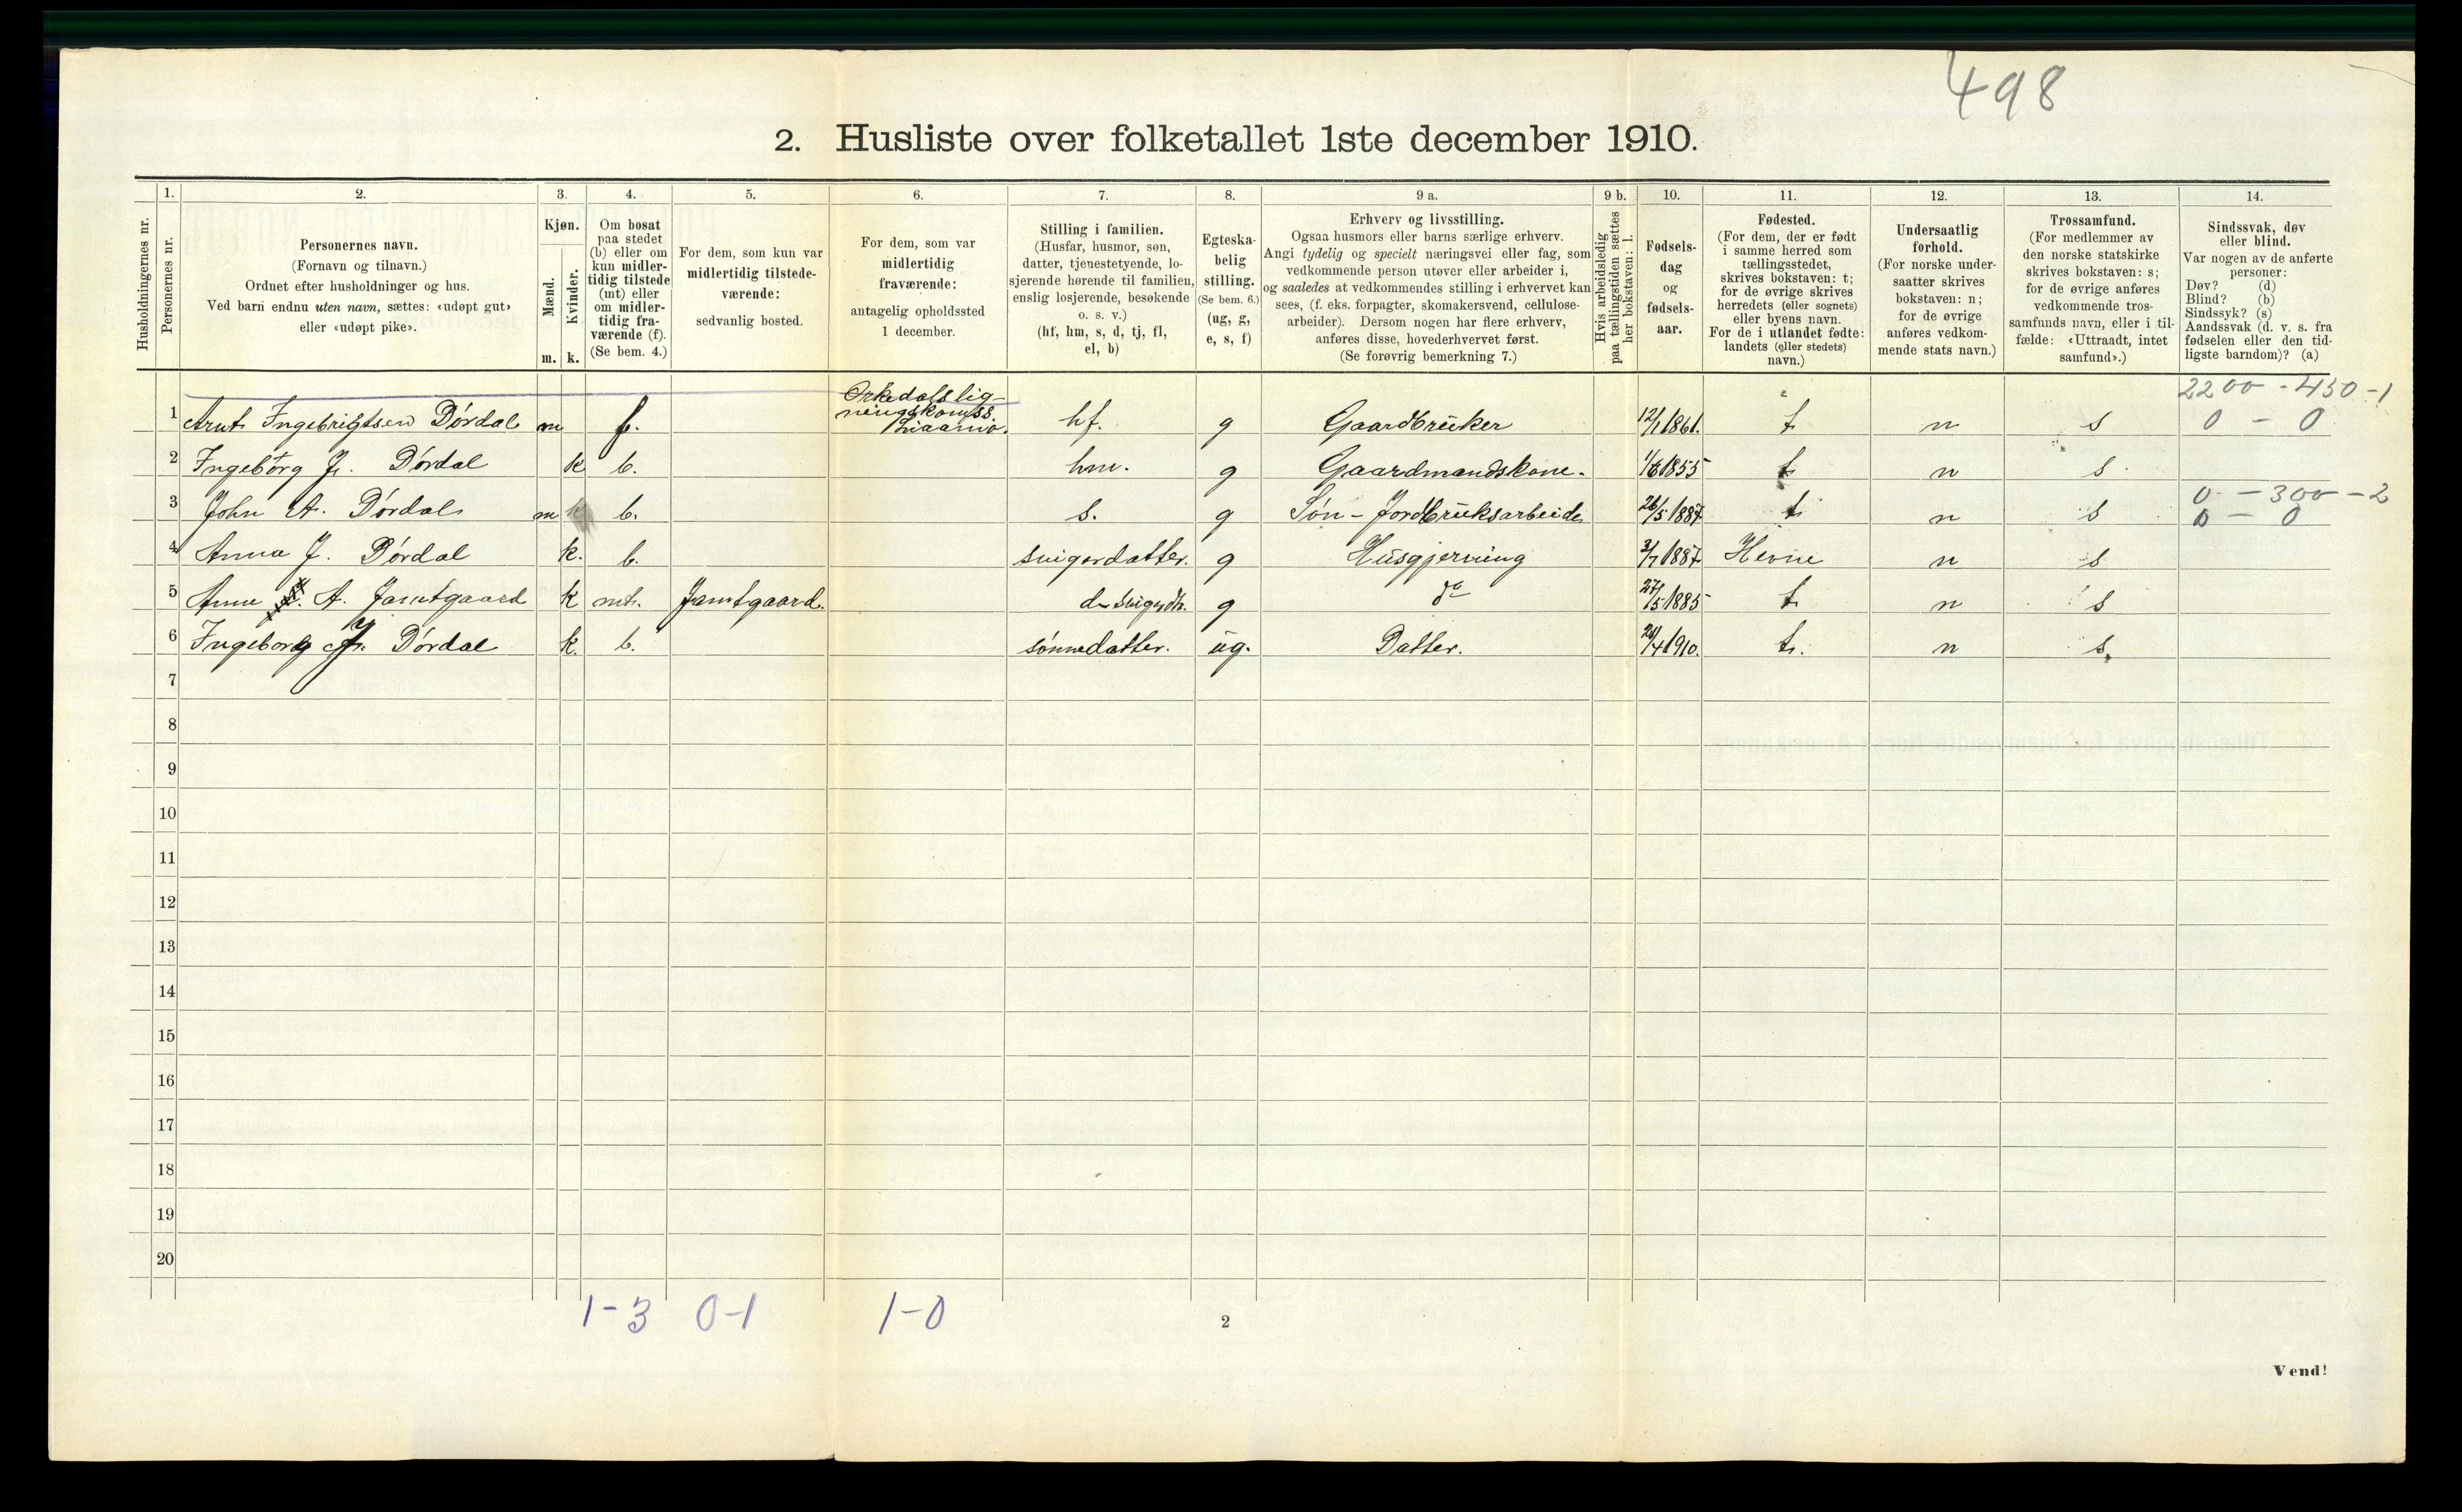 498
2. Husliste over folketallet 1ste december 1910.
Husholdningernes nr.
1.
Personernes nr.
2.
Personernes navn.
(Fornavn og tilnavn.)
Ordnet efter husholdninger og hus.
Ved barn endnu uten navn, sættes: «udøpt gut»
eller «udøpt pike».
3.
Kjøn.
Mænd.
Kvinder.
m. k.
4.
Om bosat
paa stedet
(b) eller om
kun midler-
tidig tilstede
(mt) eller
om midler-
tidig fra-
værende (f).
(Se bem. 4.)
5.
For dem, som kun var
midlertidig tilstede-
værende:
sedvanlig bosted.
6.
For dem, som var
midlertidig
fraværende:
antagelig opholdssted
1 december.
7.
Stilling i familien.
(Husfar, husmor, søn,
datter, tjenestetyende, lo-
sjerende hørende til familien,
enslig losjerende, besøkende
o. s. v.)
(hf, hm, s, d, tj, fl,
el, b)
8.
Egteska-
belig
stilling.
(Se bem. 6.)
(ug, g,
e, s, f)
9 a.
Erhverv og livsstilling.
Ogsaa husmors eller barns særlige erhverv.
Angi tydelig og specielt næringsvei eller fag, som
vedkommende person utøver eller arbeider i,
og saaledes at vedkommendes stilling i erhvervet kan
sees, (f. eks. forpagter, skomakersvend, cellulose-
arbeider). Dersom nogen har flere erhverv,
anføres disse, hovederhvervet først.
(Se forøvrig bemerkning 7.)
9 b.
Hvis arbeidsledig
paa tællingstiden sættes
her bokstaven: l.
10.
Fødsels-
dag
og
fødsels-
aar.
11.
Fødested.
(For dem, der er født
i samme herred som
tællingsstedet,
skrives bokstaven: t;
for de øvrige skrives
herredets (eller sognets)
eller byens navn.
For de i utlandet fødte:
landets (eller stedets)
navn.)
12.
Undersaatlig
forhold.
(For norske under-
saatter skrives
bokstaven: n;
for de øvrige
anføres vedkom-
mende stats navn.)
13.
Trossamfund.
(For medlemmer av
den norske statskirke
skrives bokstaven: s;
for de øvrige anføres
vedkommende tros-
samfunds navn, eller i til-
fælde: «Uttraadt, intet
samfund».)
14.
Sindssvak, døv
eller blind.
Var nogen av de anførte
personer:
Døv? (d)
Blind? (b)
Sindssyk? (s)
Aandssvak (d. v. s. fra
fødselen eller den tid-
ligste barndom)? (a)
2200 - 450 - 1
Orkedalslig-
1 Arnt Ingebrigtsen Dørdal m f. hf. g Gaardbruker 12/1 1861. t n s 0 - 0
2 Ingeborg J. Dørdal k b. hm. g Gaardmandskone. 1/6 1855 t n s
0 - 300 - 2
3 John A. Dørdal m b. s. g Søn - Jordbruksarbeider 26/5 1887 t n s 0 - 0
4 Anna J. Dørdal k. b. svigerdatter. g Husgjerning 3/7 1887 Hevne n s
5 Anne A. Jamtgaard k mt. Jamtgaard. g do 27/5 1885 t n s
6 Ingeborg J. Dørdal k. b. sønnedatter. ug. Datter. 20/4 1910. t. n s.
7
8
9
10
11
12
13
14
15
16
17
18
19
20
1-3 0-1 1-0
2
Vend!